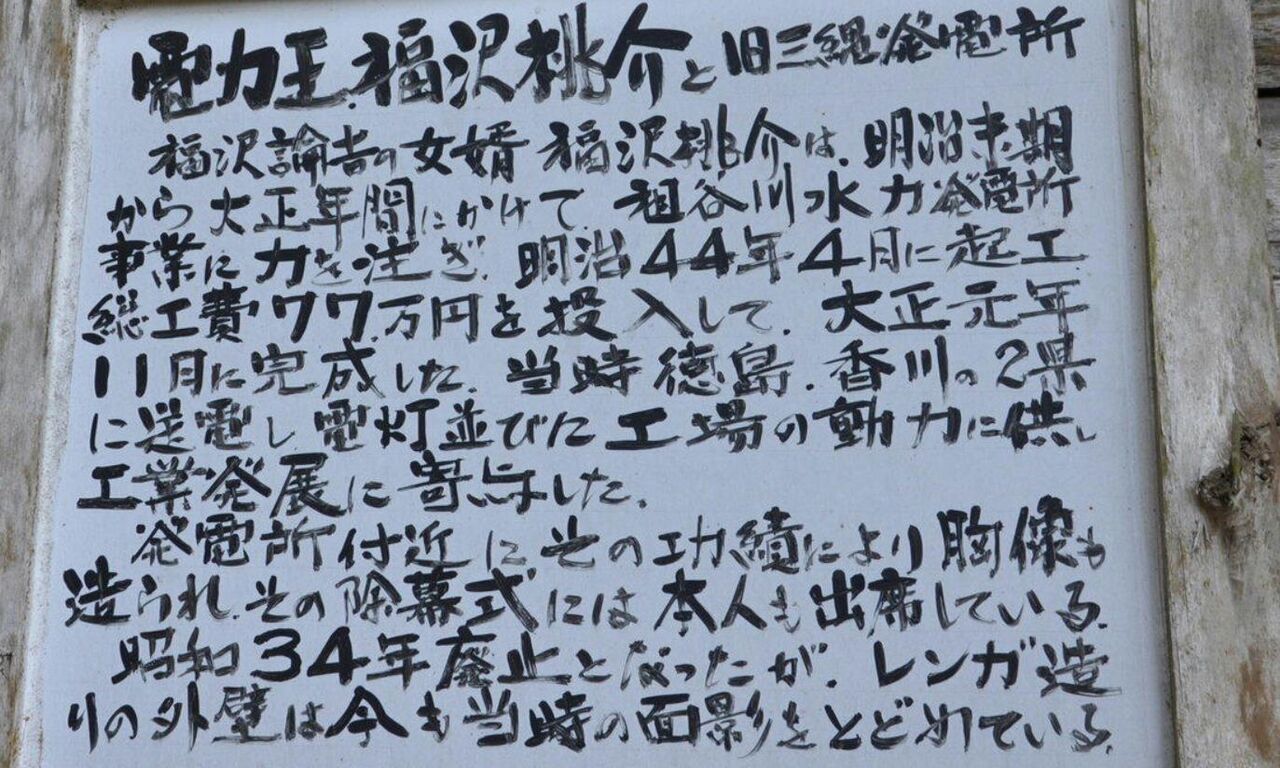 電力王.福沢桃介と旧三縄発電所
福沢諭吉の女婿 福沢桃介は、明治末期
から大正年間にかけて、祖谷川水力発電所
事業に力を注ぎ、明治44年4月に起工
総工費77.万円を投入して、大正元年
11月に完成した。当時徳島、香川の2県
に送電し、電灯並びに工場の動力に供し
工業発展に寄与した。
発電所付近にその功績により胸像も
造られ、その除幕式には本人も出席している。
昭和34年廃止となったが、レンガ造
りの外壁は今も当時の面影をとどめている。